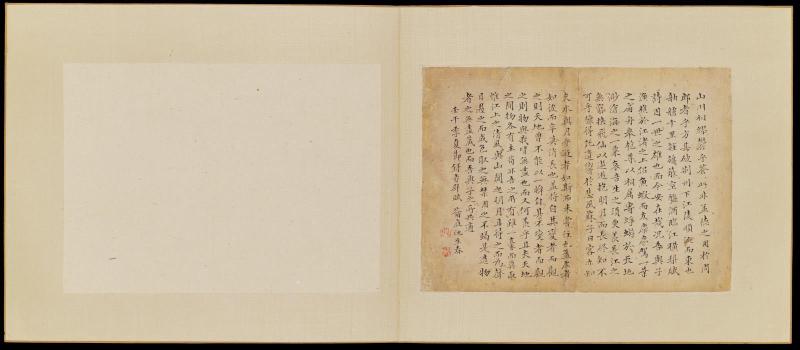 山川相繆鬱乎蒼蒼此非孟德之困於周
郎者乎方其破荊州下江陵順流而東也
舳艫千里旌旗蔽空釃酒臨江橫槊賦
詩固一世之雄也而今安在哉況吾與子
漁樵於江渚之上侶魚蝦而友麋鹿駕一葉
之扁舟舉匏尊以相屬寄蜉蝣於天地
渺滄海之一粟哀吾生之須臾羨長江之
無窮挾飛仙以遨遊抱明月而長終知不
可乎驟得託遺響於悲風蘇子曰客亦知
夫水與月乎逝者如斯而未嘗往也盈虛者
如彼而卒莫消長也蓋將自其變者而觀
之則天地曾不能以一瞬自其不變者而觀
之則物與我皆無盡也而又何羨乎且夫天地
之間物各有主苟非吾之所有雖一毫而莫取
惟江上之清風與山間之明月耳得之而為聲
目遇之而成色取之無禁用之不竭是造物
者之無盡藏也而吾與子之所共適
壬午季夏節錄赤壁賦